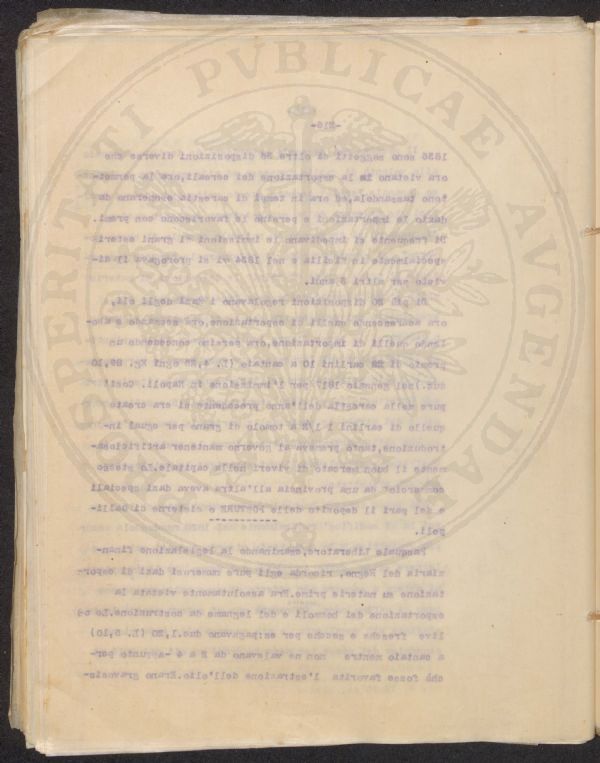 PVBLICAE
AVGENDAE
PROSPERITATI
-216-
1836 sono soggetti di oltre 36 disposizioni diverse che
ora vietano la esportazione dei cereali, ora la permet-
tono tassandola, ed ora in tempi di carestia esonerano da
dazio le importazioni e persino le favoriscono con premi.
Di frequente si impedivano le immissioni di grani esteri
specialmente in Sicilia e nel 1834 vi si prorogava il di-
vieto per altri 5 anni.
Di più 20 disposizioni regolavano i dazi degli oli,
ora quelli di esportazione, ora
quelli di importazione, ora persino concedendo un
premio di carlini 10 a cantaio (L. 4,25 ogni Kg. 89,10
dic.)nel gennaio 1817 per l'immissione in Napoli. Così
pure nella carestia dell'anno precedente si era creato
quello di carlini 1 1/2 a tomolo di grano per ogni in-
troduzione, tanto premeva al governo mantener artificiosa-
mente il buon mercato di viveri nella capitale. Lo stesso
commercio da una provincia all'altra aveva dazi speciali
e del pari il deposito delle e cisterne di Galli-
poli.
Pasquale Liberatore, esaminando la legislazione finan-
ziaria del Regno, ricorda egli pure numerosi dazi di espor-
tazione su materie prime. Era assolutamente vietata la
esportazione dei bozzoli e del legname da costruzione. Le o-
live fresche e secche per es: pagavano duc. 1,20 (L. 5,10)
a cantaio mentre non ne valevano da 2 a 4 -appunto per-
chè fosse favorita l'estrazione dell'olio. Erano gravosis-